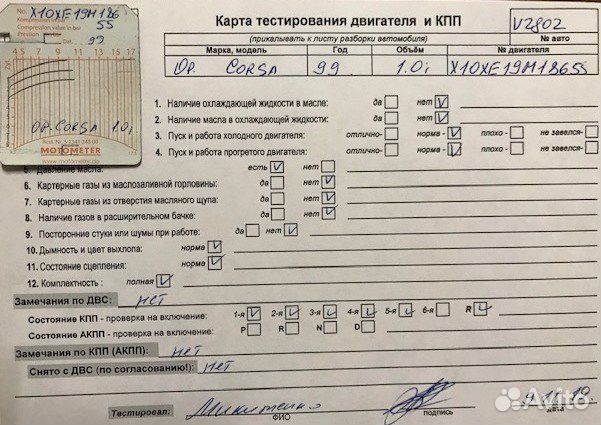 № X10XE19M1865
55
Compression value in bar
Pression
Date
99
4 5 7 8 9 10 11 12 13 14 15 16 17
OP. CORSA 1.0i
MOTOMETER
www.motometer.de
Карта тестирования двигателя и КПП
(прикалывать к листу разборки автомобиля)
V2802
№ авто
Марка, модель Год Объём № двигателя
OP. CORSA 99 1.0i X10XE19M18655
1. Наличие охлаждающей жидкости в масле: да нет V
2. Наличие масла в охлаждающей жидкости: да нет V
3. Пуск и работа холодного двигателя: отлично- норма - V плохо - не завелся-
4. Пуск и работа прогретого двигателя: отлично- норма - V плохо - не завелся-
5. Давление масла: есть V нет
6. Картерные газы из маслозаливной горловины: да нет V
7. Картерные газы из отверстия масляного щупа: да нет V
8. Наличие газов в расширительном бачке: да нет V
9. Посторонние стуки или шумы при работе: да нет V
10. Дымность и цвет выхлопа: норма V
11. Состояние сцепления: норма V
12. Комплектность : полная V
Замечания по ДВС: нет
Состояние КПП - проверка на включение: 1-я V 2-я V 3-я V 4-я V 5-я V 6-я R V
Состояние АКПП - проверка на включение: P R N D
Замечания по КПП (АКПП): нет
Снято с ДВС (по согласованию!): нет
Тестировал: Микитенко
ФИО подпись дата
Avito